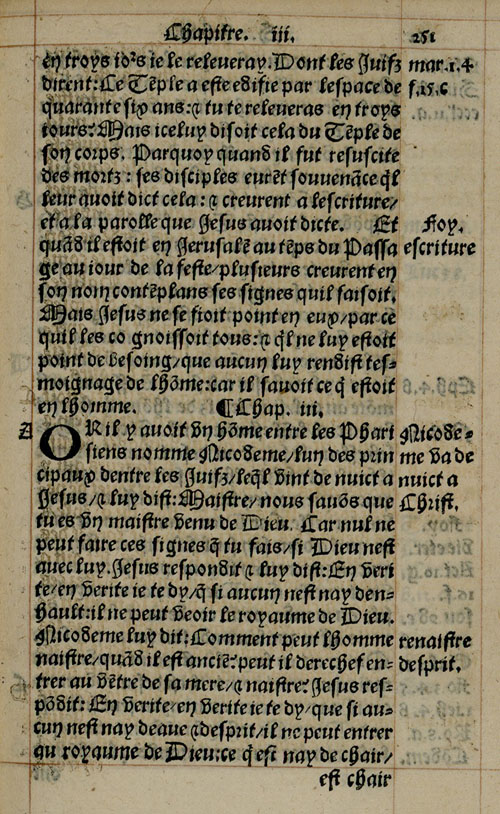 Chapitre. iii. 251
en troys io²s ie le releueray. Dont les Juifz mar.1.4
dirent: Ce Tẽple a este edifie par lespace de f.15.c
quarante six ans: ⁊ tu te releueras en troys
iours? Mais iceluy disoit cela du Tẽple de
son corps. Parquoy quand il fut resuscite
des mortz: ses disciples eurẽt souuenãce q̃l
leur auoit dict cela: ⁊ creurent a lescriture/
et a la parolle que Jesus auoit dicte. Et Foy.
quãd il estoit en Jerusalẽ au tẽps du Passa escriture
ge au iour de la feste/plusieurs creurent en
son nom contẽplans ses signes quil faisoit.
Mais Jesus ne se fioit point en eux/par ce
quil les co gnoissoit tous: ⁊ q̃l ne luy estoit
point de besoing/que aucun luy rendist tes-
moignage de lhõme: car il sauoit ce q̃ estoit
en lhomme. ¶Chap. iii.
A OR il y auoit vn hõme entre les Phari Nicode-
siens nomme Nicodeme/lun des prin me va de
cipaux dentre les Juifz/leq̃l vint de nuict a nuict a
Jesus/⁊ luy dist: Maistre/nous sauõs que Christ.
tu es vn maistre venu de Dieu. Car nul ne
peut faire ces signes q̃ tu fais/si Dieu nest
auec luy. Jesus respondit ⁊ luy dist: En veri
te/en verite ie te dy/q̃ si aucun nest nay den-
hault: il ne peut veoir le royaume de Dieu.
Nicodeme luy dit: Comment peut lhomme renaistre
naistre/quãd il est anciẽ? peut il derechef en- desprit.
trer au vẽtre de sa mere/⁊ naistre? Jesus res-
põdit: En verite/en verite ie te dy/que si au-
cun nest nay deaue ⁊ desprit/il ne peut entrer
au royaume de Dieu: ce q̃ est nay de chair/
est chair